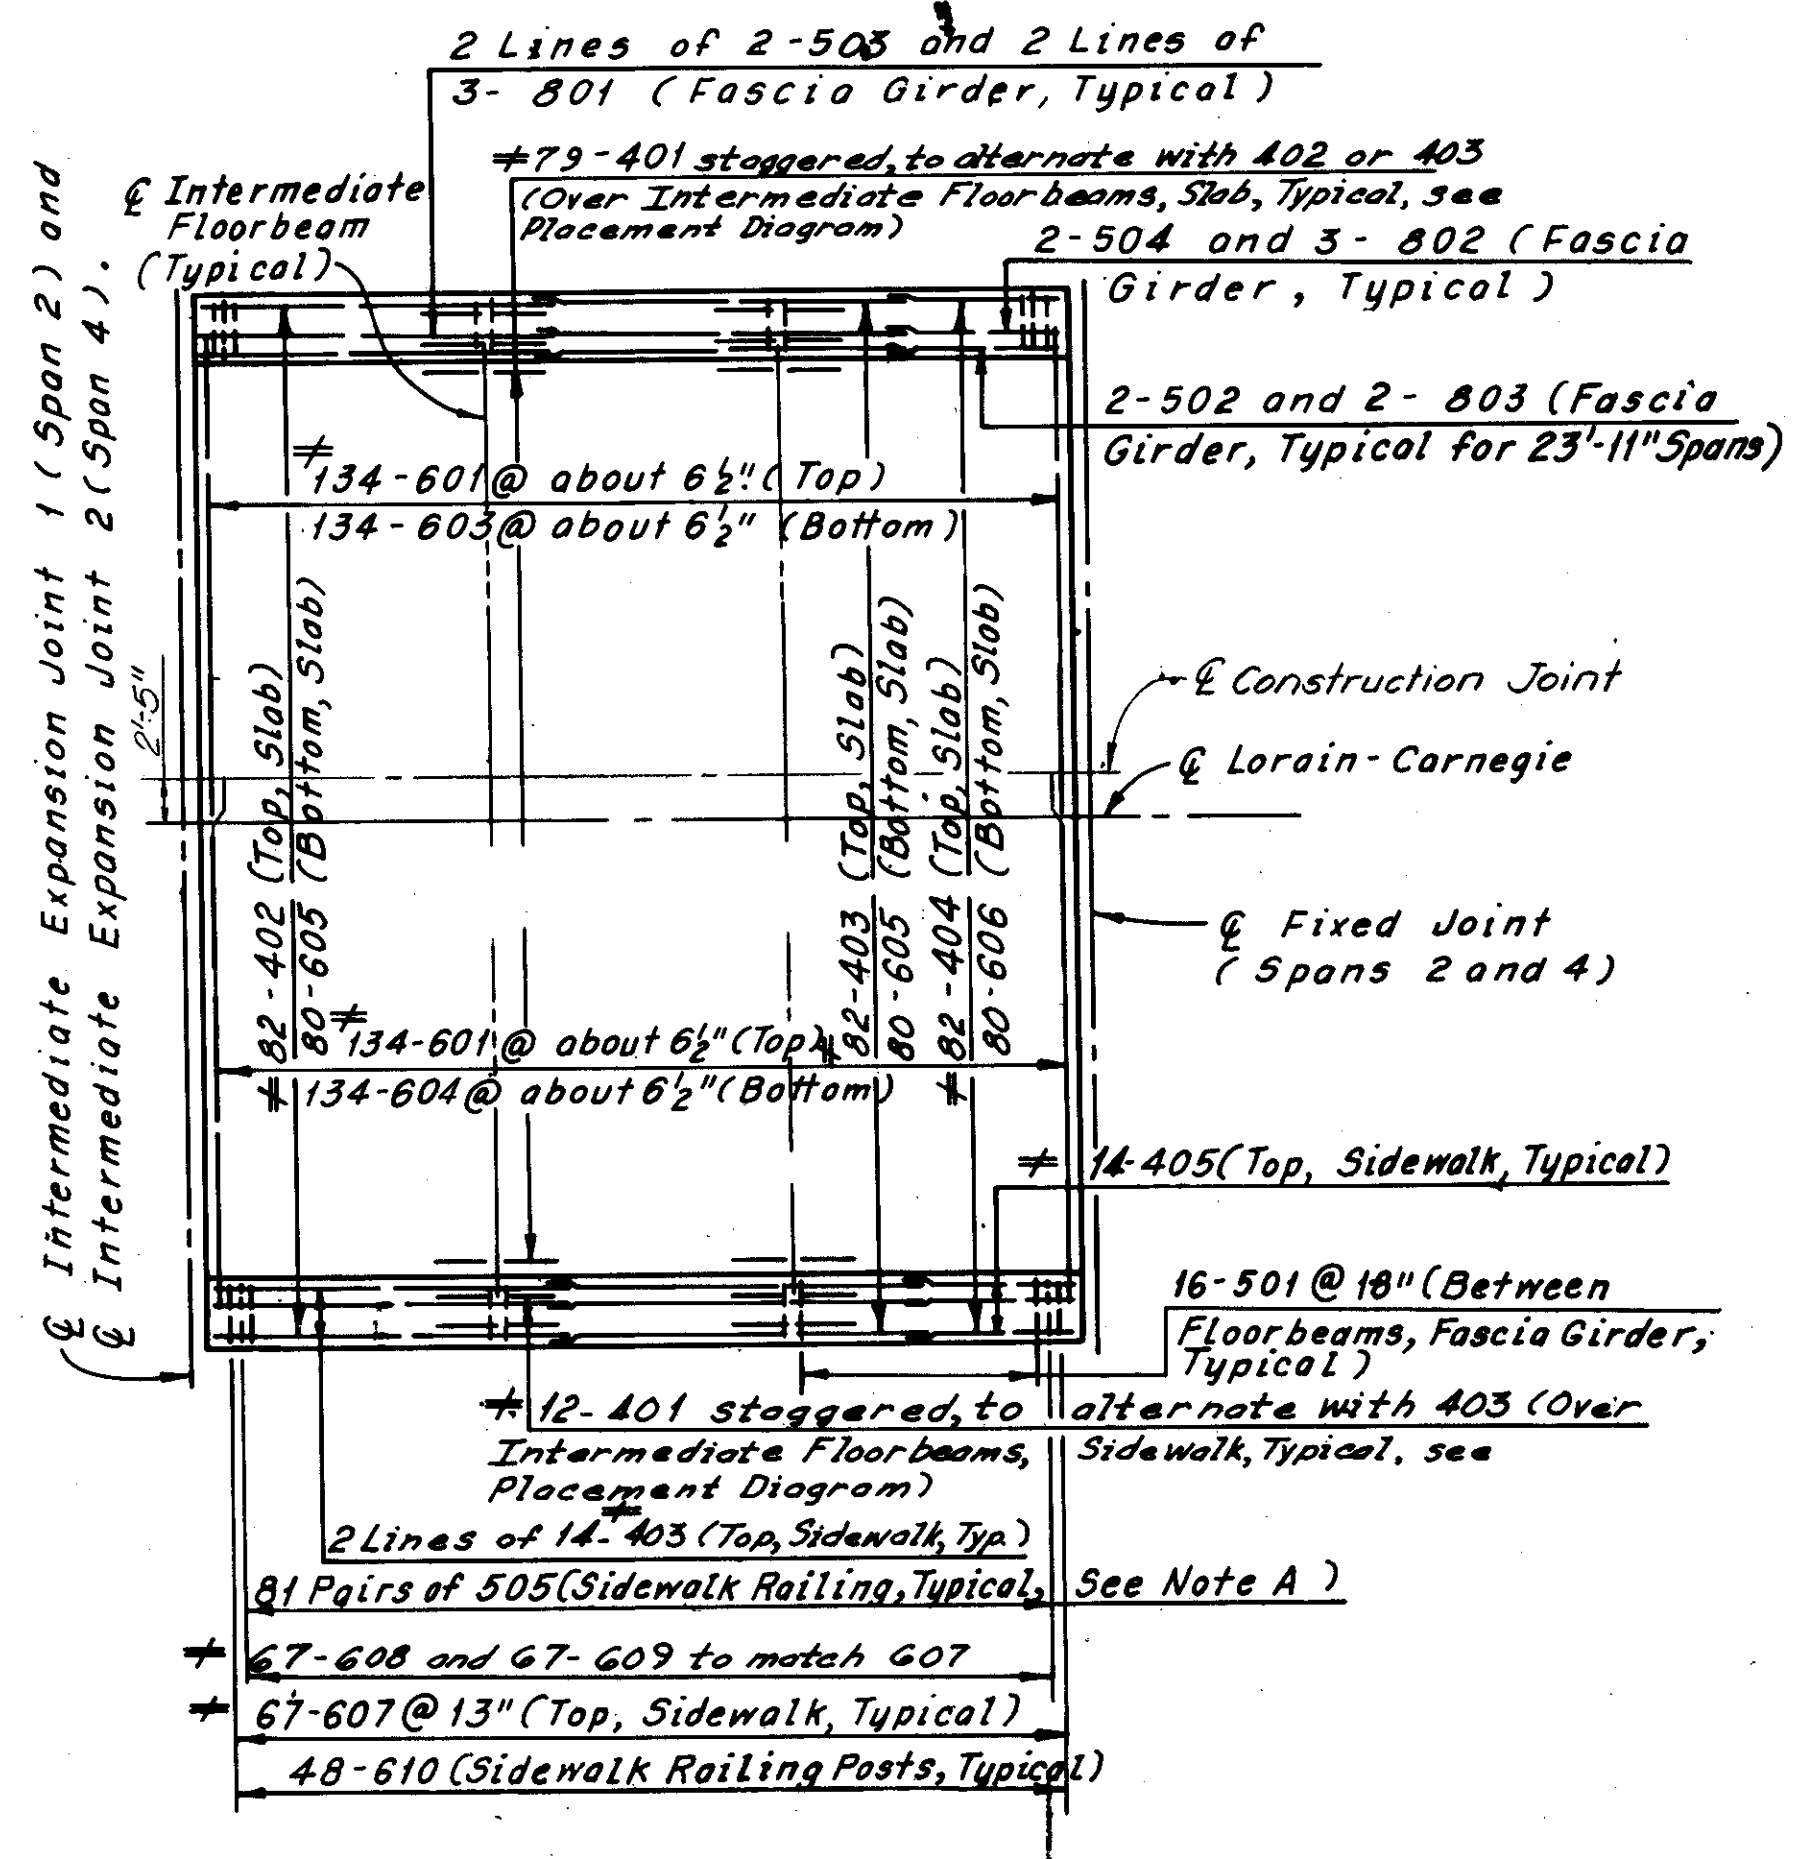 2 Lines of 2-503 and 2 Lines of
3- 801 (Fascia Girder, Typical)
≠79-401 staggered, to alternate with 402 or 403
(Over Intermediate Floorbeams, Slab, Typical, see
Placement Diagram)
℄ Intermediate
Floorbeam
(Typical)
2-504 and 3- 802 (Fascia
Girder, Typical)
2-502 and 2- 803 (Fascia
Girder, Typical for 23'-11" Spans)
≠
134-601 @ about 6½" (Top)
134-603 @ about 6½" (Bottom)
℄ Intermediate Expansion Joint 1 (Span 2) and
℄ Intermediate Expansion Joint 2 (Span 4).
2'-5"
≠ 82-402 (Top, Slab)
80-605 (Bottom, Slab)
≠ 82-403 (Top, Slab)
80-605 (Bottom, Slab)
≠ 82-404 (Top, Slab)
80-606 (Bottom, Slab)
℄ Construction Joint
℄ Lorain-Carnegie
℄ Fixed Joint
(Spans 2 and 4)
≠
134-601 @ about 6½" (Top)
134-604 @ about 6½" (Bottom)
≠ 14-405 (Top, Sidewalk, Typical)
16-501 @ 18" (Between
Floorbeams, Fascia Girder,
Typical)
≠ 12-401 staggered, to alternate with 403 (Over
Intermediate Floorbeams, Sidewalk, Typical, see
Placement Diagram)
≠
2 Lines of 14-403 (Top, Sidewalk, Typ.)
81 Pairs of 505 (Sidewalk Railing, Typical, See Note A)
≠ 67-608 and 67-609 to match 607
≠ 67-607 @ 13" (Top, Sidewalk, Typical)
48-610 (Sidewalk Railing Posts, Typical)